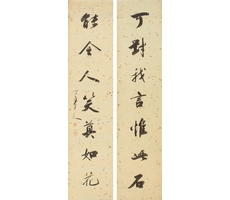 可對我言惟此石
能令人笑莫如花